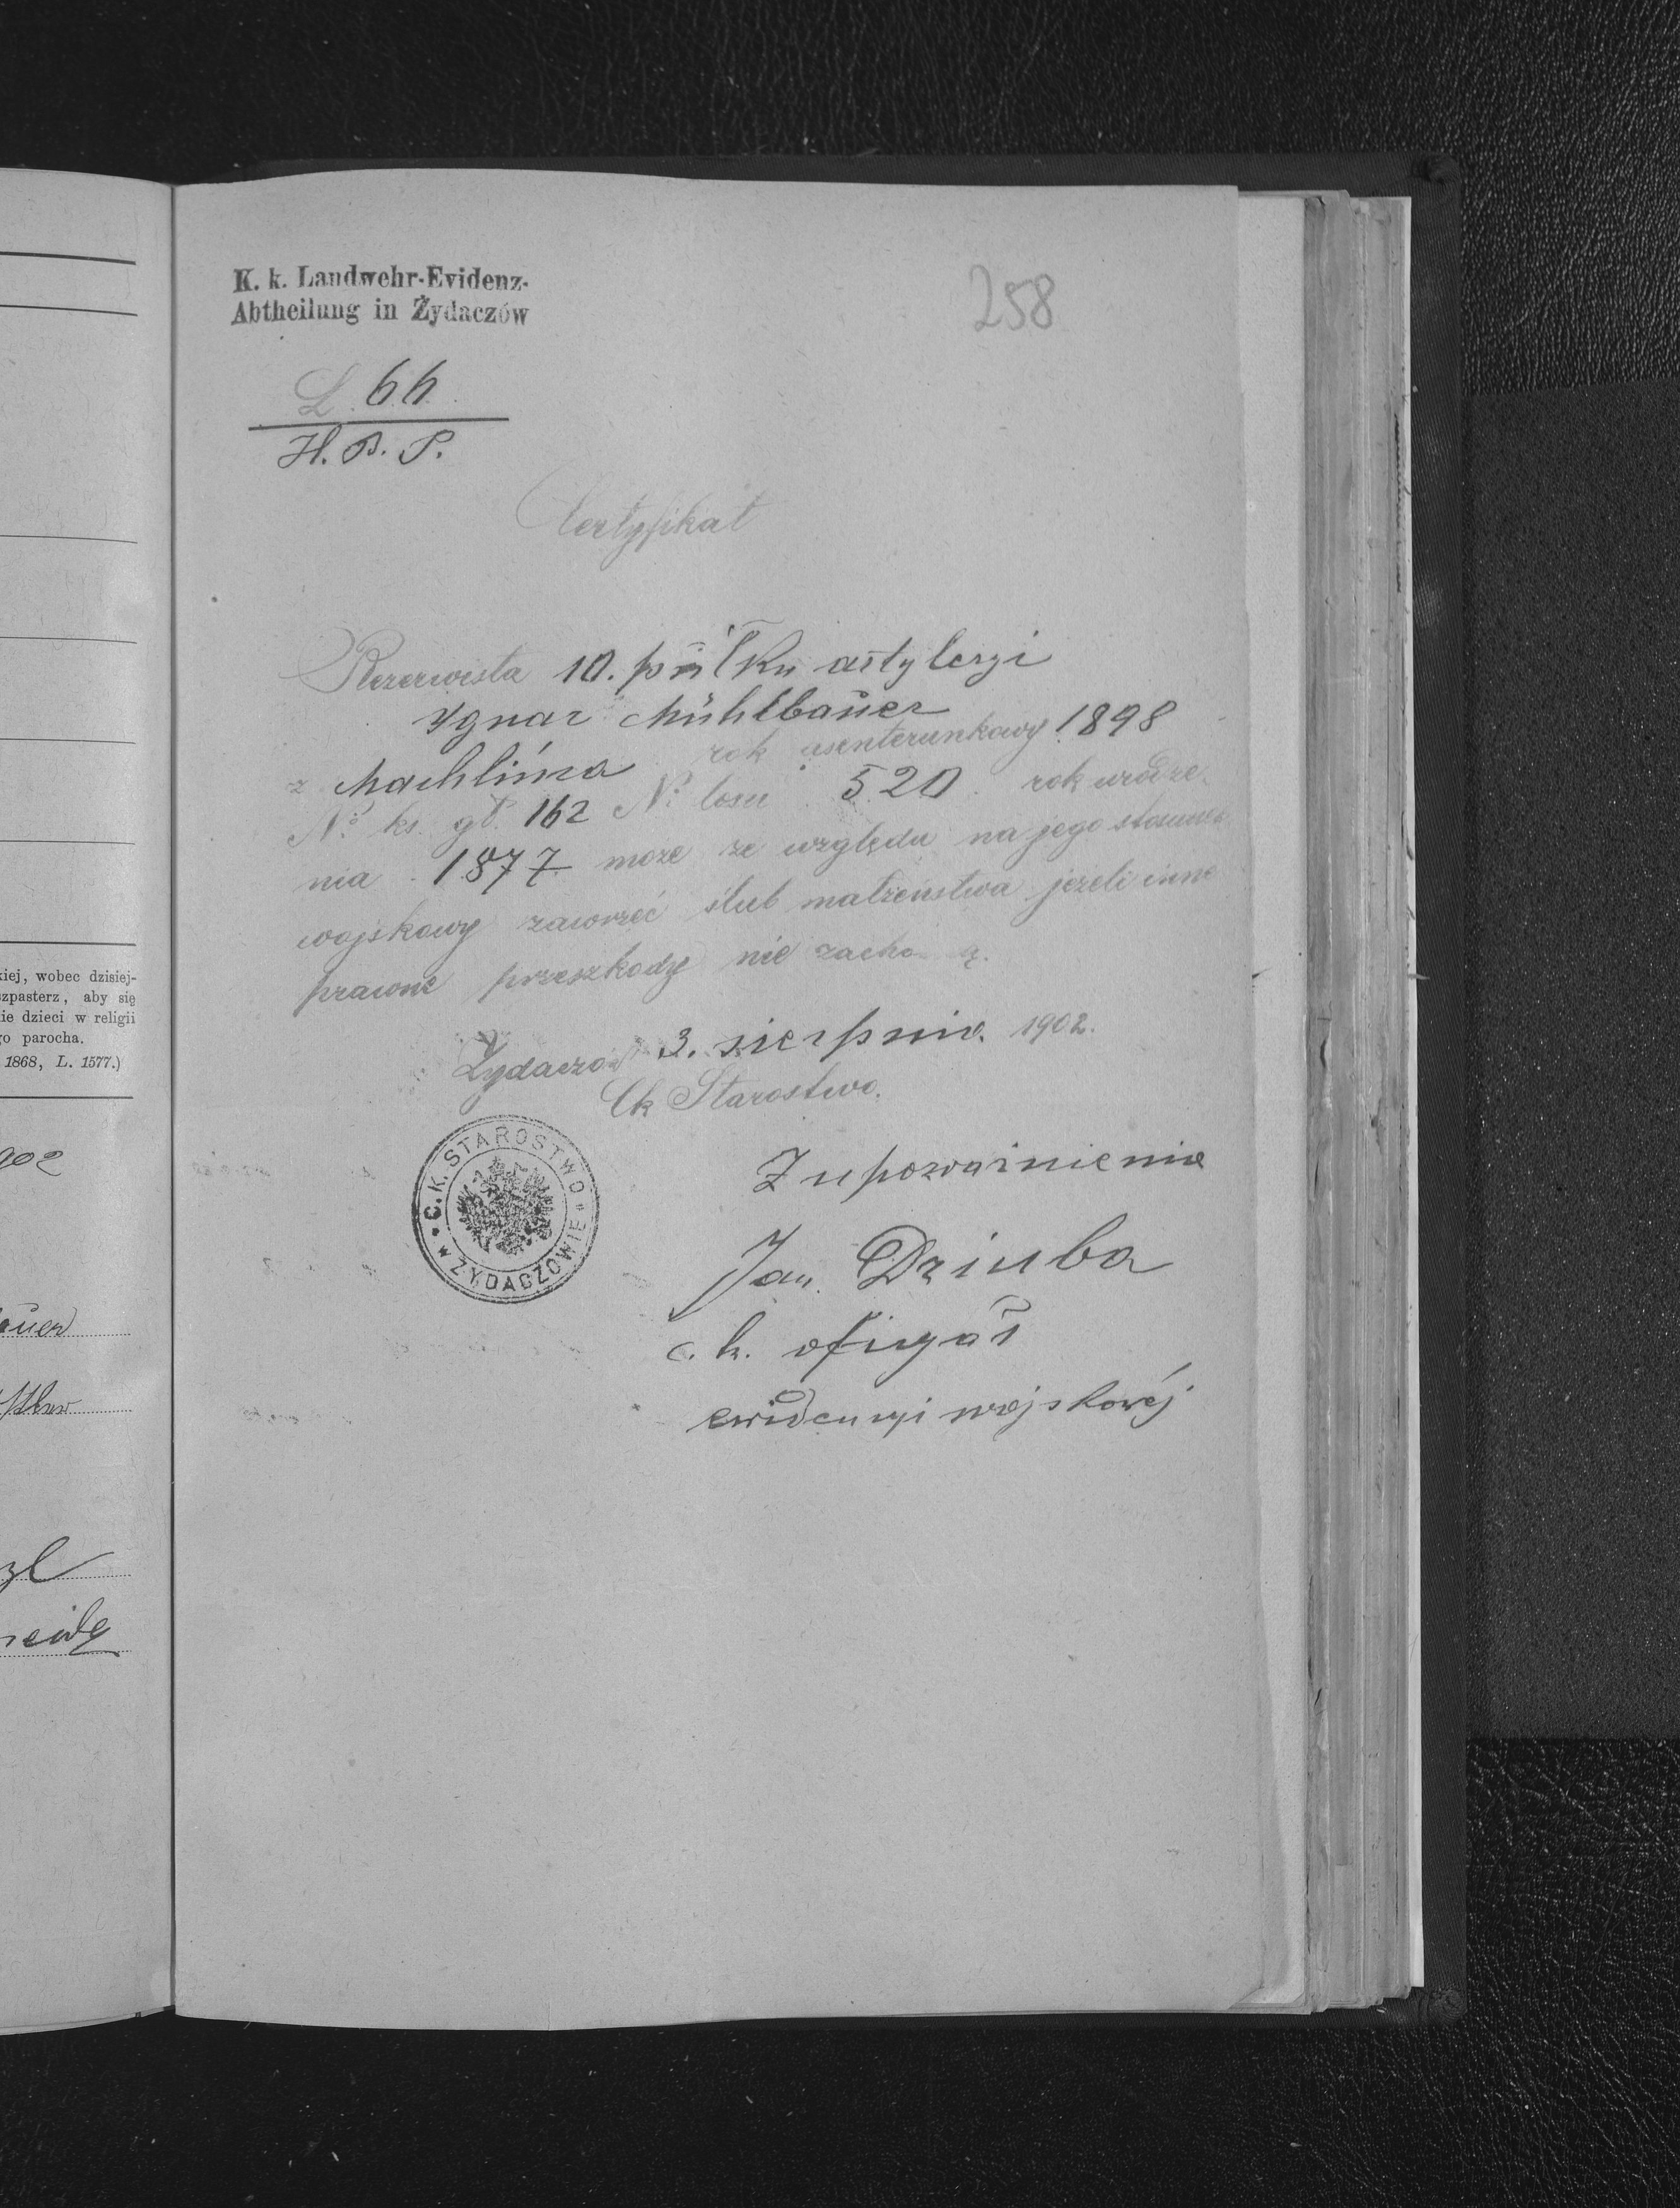 kiej, wobec dzisiej-
szpasterz, aby się
ie dzieci w religii
o parocha.
1868, L. 1577.)
902
K. k. Landwehr-Evidenz-
Abtheilung in Żydaczów
258
L. 66
H. B. P.
Certyfikat
Rezerwista 10. pułku artyleryi
Ygnaz Mühlbauer
z Machlińca rok asenterunkowy 1898
No ks. gł. 162 No losu 520 rok urodze
nia 1877 może ze względu na jego stosunek
wojskowy zawrzeć ślub małżeństwa jeżeli inne
prawne przeszkody nie zachodzą.
Żydaczów 3. sierpnia 1902.
Ck Starostwo.
C. K. STAROSTWO w ŻYDACZOWIE
Z upoważnienia
Jan Dziuba
c. k. oficyał
ewidencyi wojskowéj